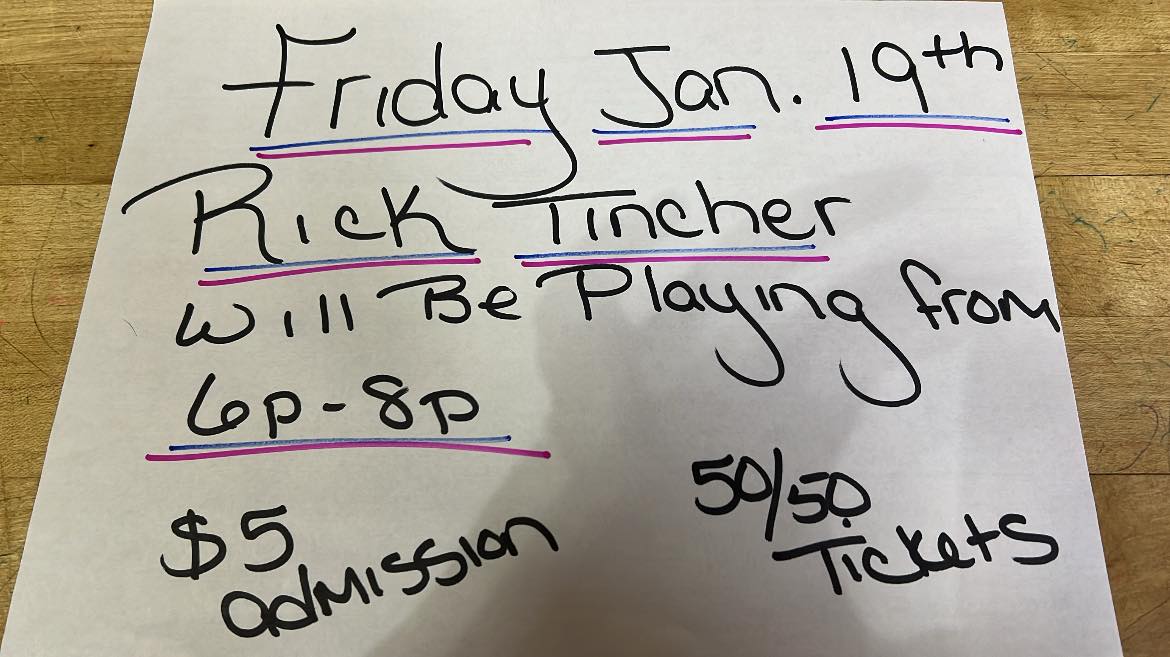 Friday Jan. 19th
Rick Tincher
Will Be Playing from
6p - 8p
$5
admission
50/50
Tickets